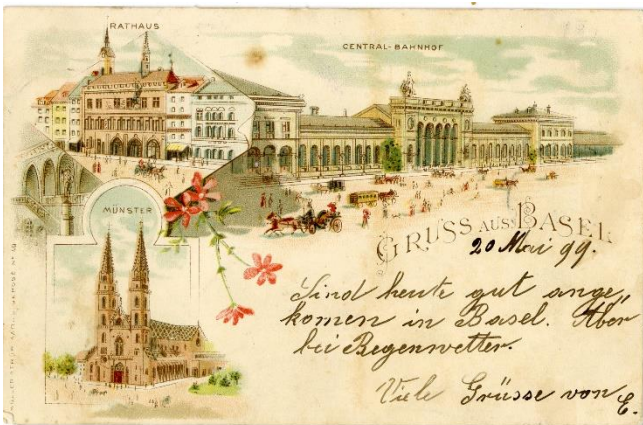 RATHAUS
CENTRAL-BAHNHOF
MÜNSTER
GRUSS AUS BASEL
20 Mai 99.
Sind heute gut ange,
komen in Basel. Aber
bei Regenwetter.
Viele Grüsse von
E.